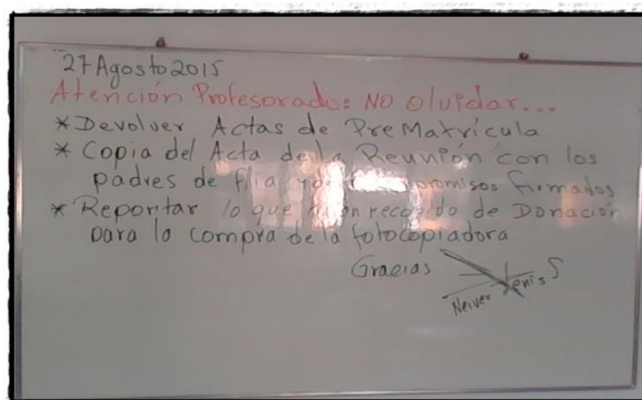 27 Agosto 2015
Atención Profesorado: NO olvidar...
* Devolver Actas de PreMatrícula
* Copia del Acta de la Reunión con los
padres de flia y de promisos firmados
* Reportar lo que han reco do de Donación
para la compra de la fotocopiadora
Gracias
Neiver Yenis S